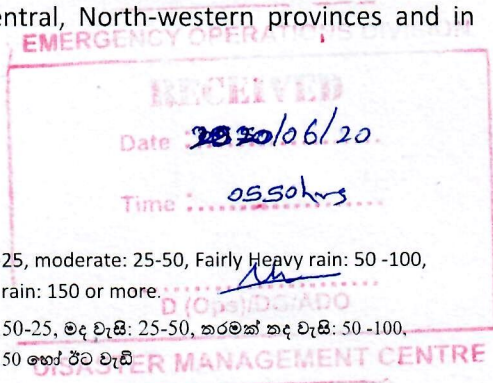 entral, North-western provinces and in
EMERGENCY OPERATIONS DIVISION
RECEIVED
Date : 2020/06/20
Time : 0550hrs
25, moderate: 25-50, Fairly Heavy rain: 50 -100,
rain: 150 or more.
D (Ops)/DG/ADO
50-25, මද වැසි: 25-50, තරමක් තද වැසි: 50 -100,
50 හෝ ඊට වැඩි
DISASTER MANAGEMENT CENTRE